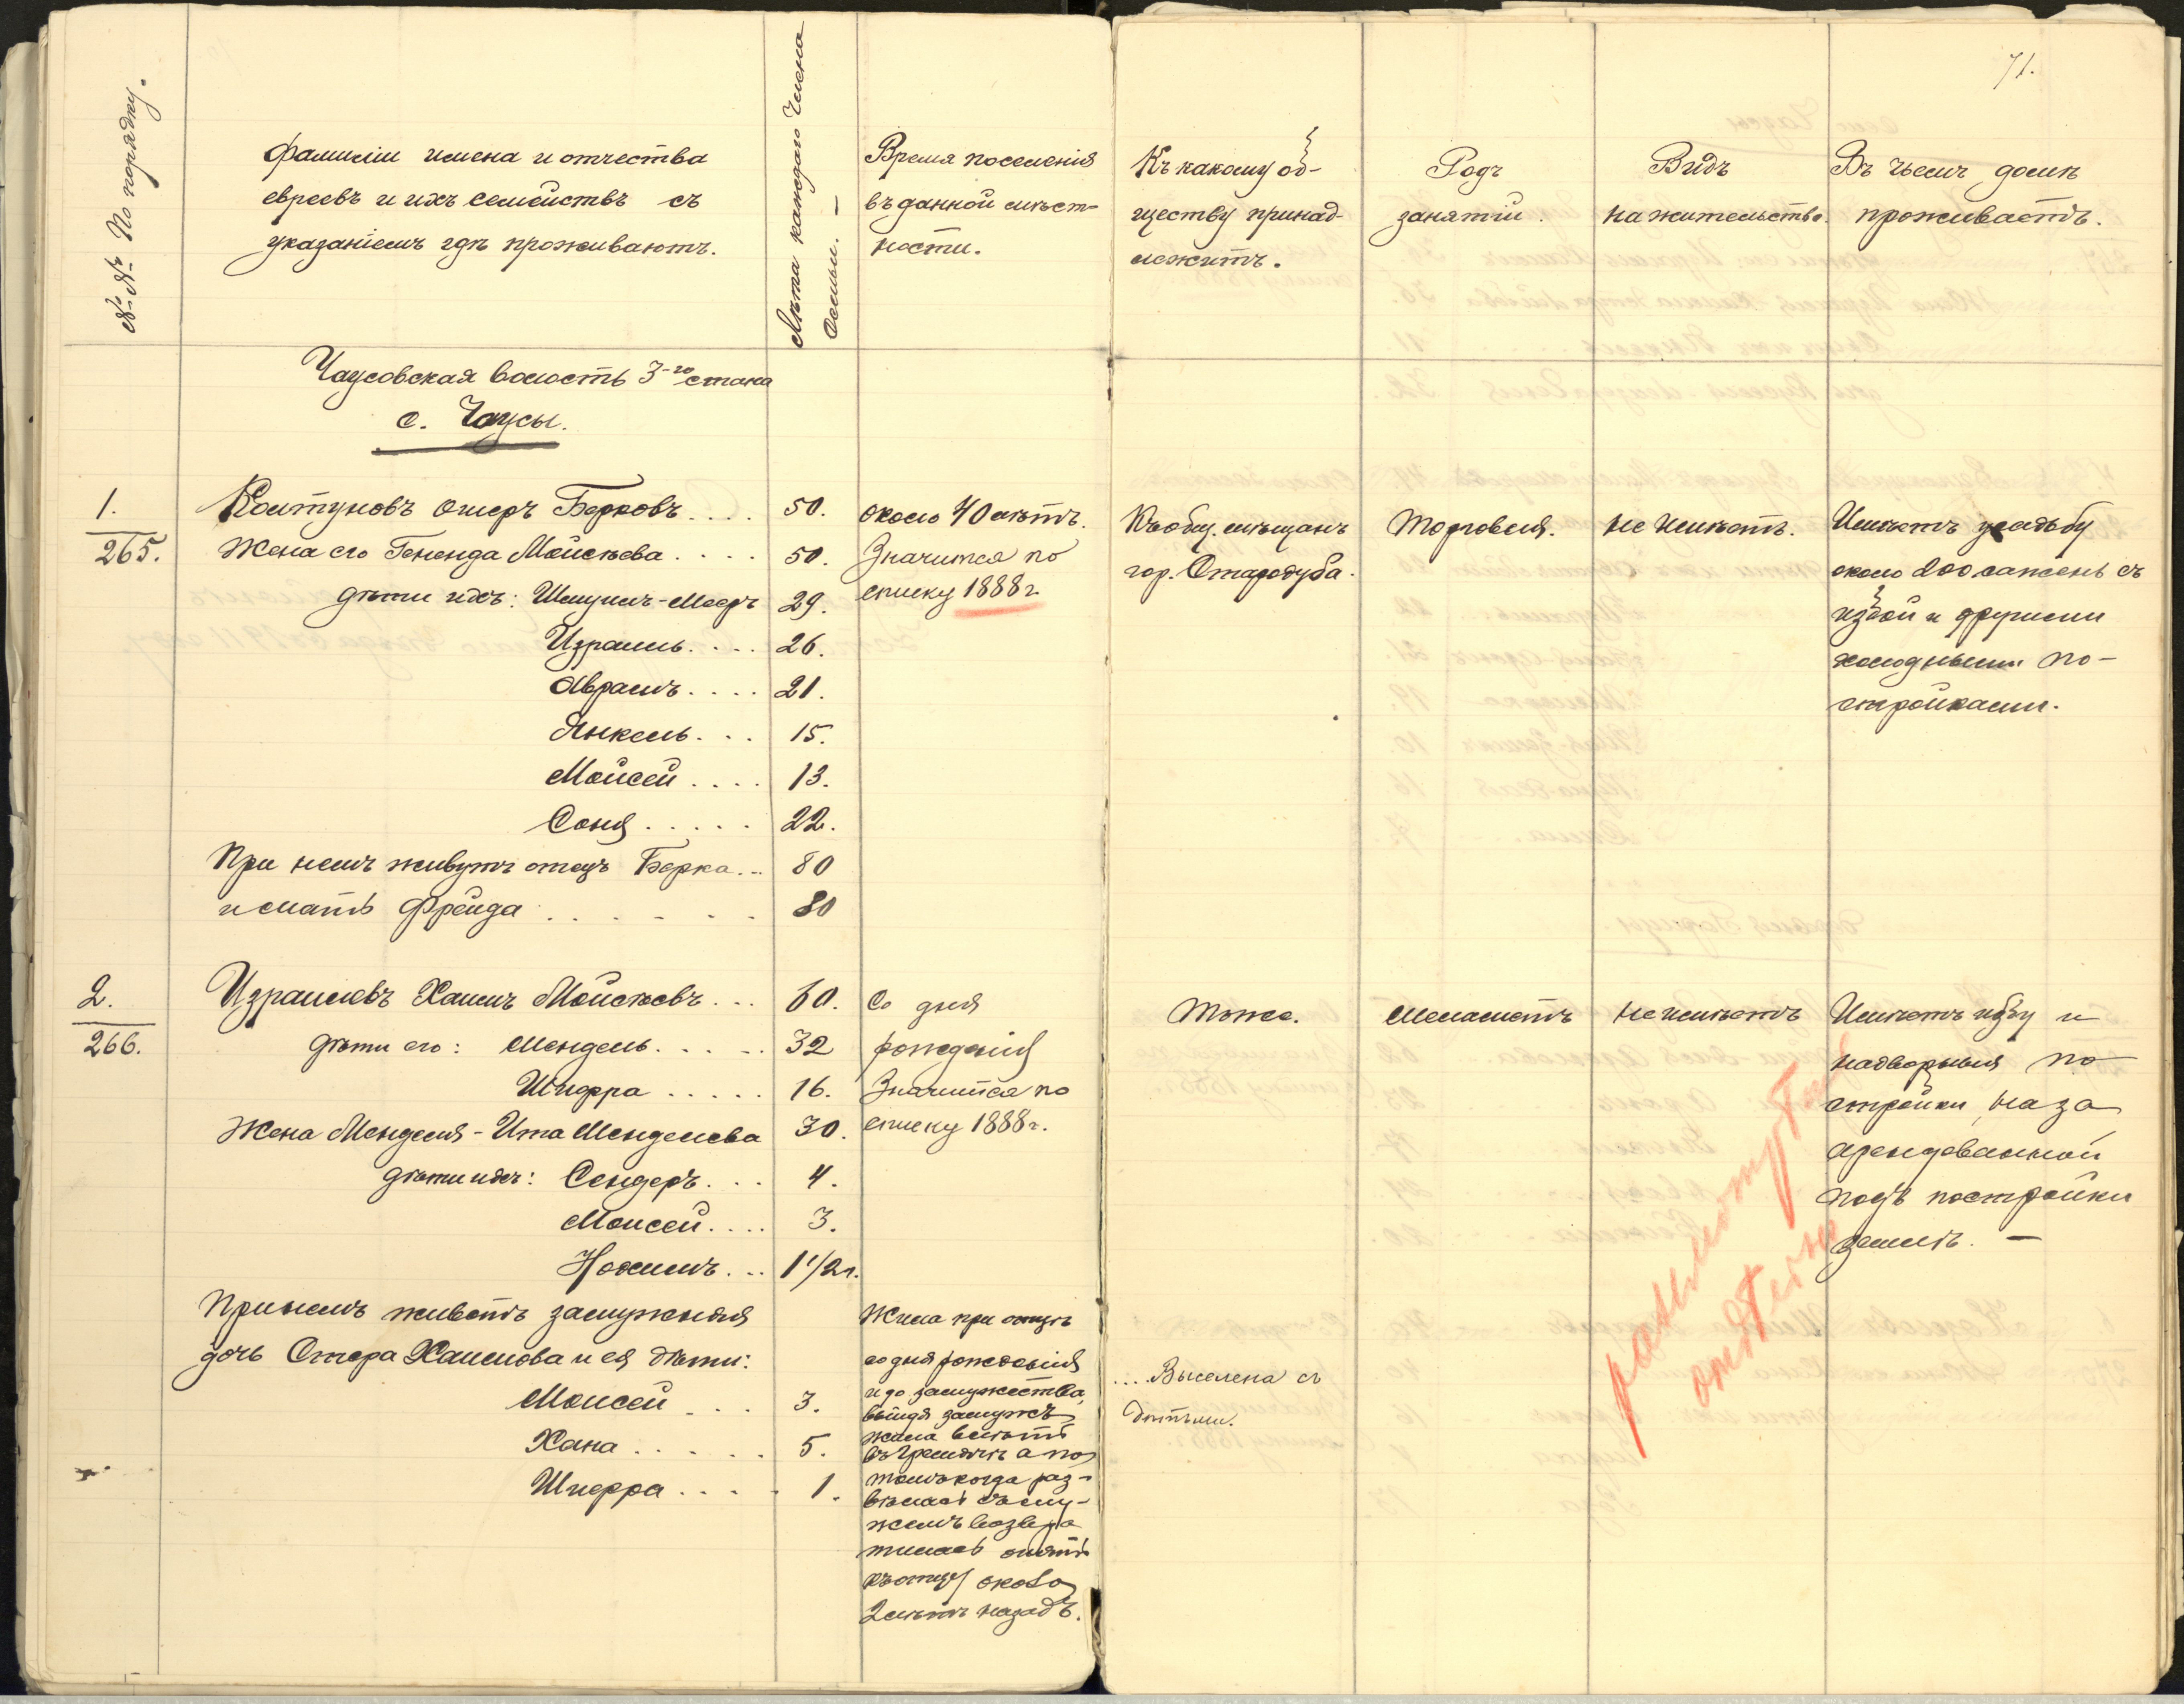 71.
№№ По порядку.
Фамиліи имена и отчества
евреевъ и ихъ семействъ съ
указаніемъ гдѣ проживаютъ.
Лѣта каждаго члена
семьи. —
Время поселенія
въ данной мѣст-
ности.
Къ какому об-
ществу принад-
лежитъ.
Родъ
занятій.
Видъ
на жительство.
Въ чьемъ домѣ
проживаетъ.
Чаусовская волость 3-го стана
с. Чаусы.
1.
265.
Колтуновъ Ошеръ Берковъ.... 50.
Жена его Гененда Мойсѣева.... 50.
дѣти ихъ: Шмуилъ-Мееръ 29.
Израиль.... 26.
Абрамъ.... 21.
Янкель... 15.
Мойсей.... 13.
Соня..... 22.
При немъ живутъ отецъ Берка... 80
и мать Фрейда...... 80
около 40 лѣтъ.
Значится по
списку 1888 г.
Къ общ. мѣщанъ
гор. Стародуба.
Торговля.
не имѣетъ.
Имѣетъ усадьбу
около 200 сажень съ
избой и другими
холодными по-
стройками.
2.
266.
Израилевъ Хаимъ Мойсѣевъ... 60.
дѣти его: Мендель..... 32
Шифра..... 16.
Жена Менделя - Ита Менделева 30.
дѣти ихъ: Сендеръ... 4.
Моисей.... 3.
Нохимъ... 1 1/2 г.
При немъ живетъ замужняя
дочь Стера Хаимова и ея дѣти:
Моисей... 3.
Хана..... 5.
Шифра.... 1.
Со дня
рожденія
Значится по
списку 1888 г.
Жила при отцѣ
со дня рожденія
и до замужества,
выйдя замужъ
жила
а по
томъ когда раз-
велась съ му-
жемъ возвра
тилась опять
къ отцу около
2 лѣтъ назадъ.
Тоже.
Меламетъ
не имѣетъ
Имѣетъ избу и
надворныя по
стройки на за
арендованной
подъ постройки
землѣ. —
... Выселена съ
дѣтьми.